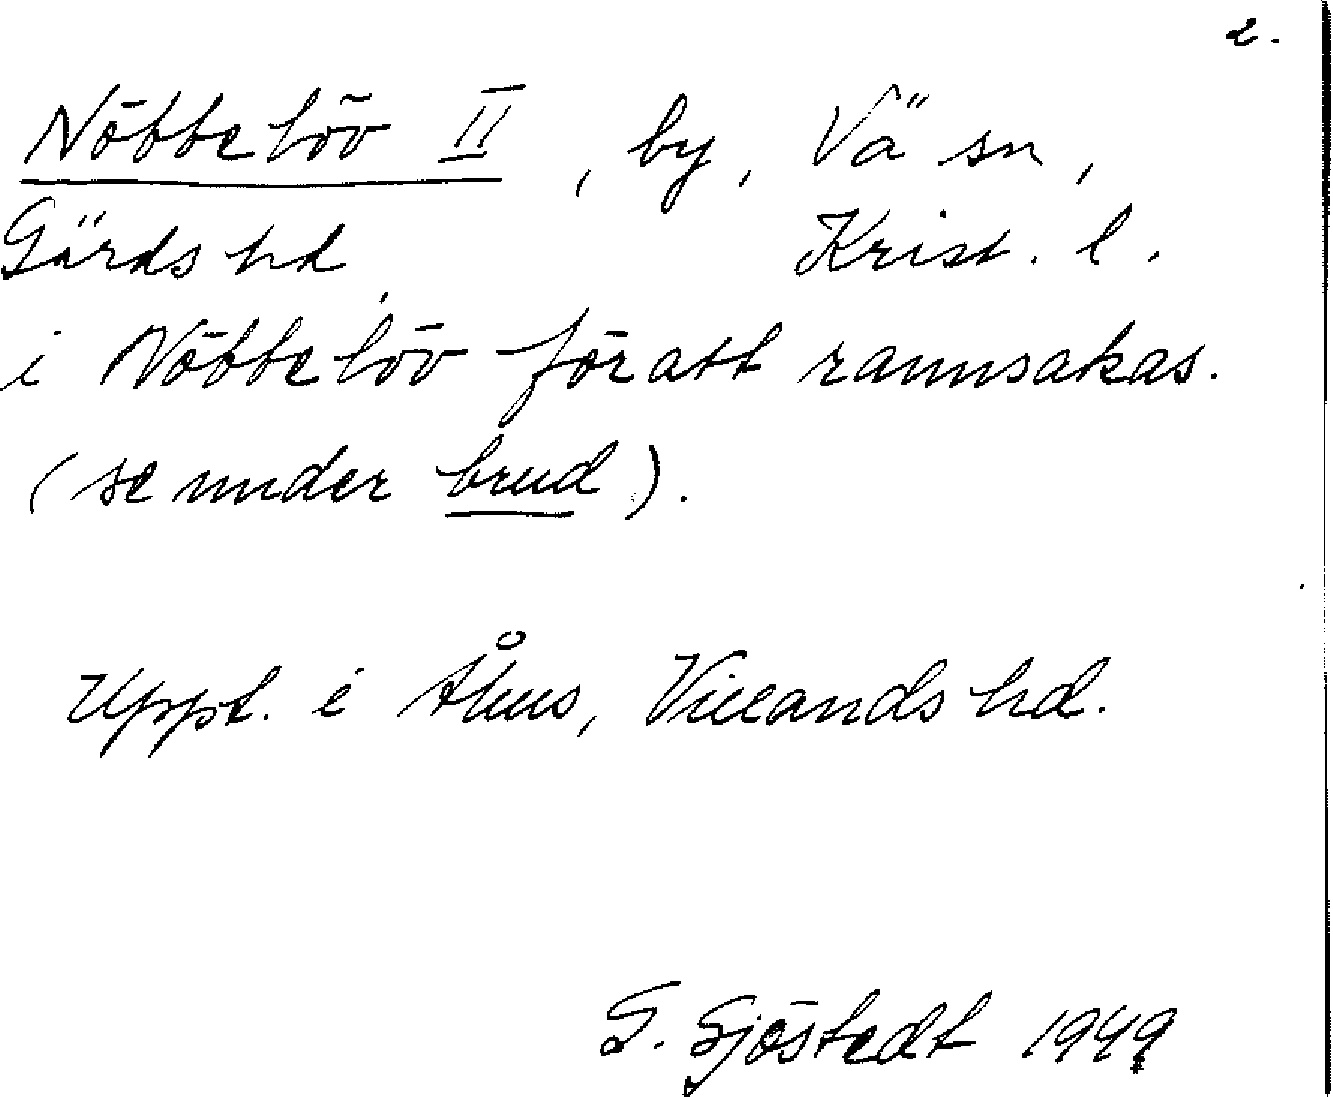 2.
Nöbbelöv II, by, Vä sn,
Gärds hd Krist. l.
i Nöbbelöv för att rannsakas.
(se under brud).
Uppt. i Åhus, Villands hd.
G. Sjöstedt 1949